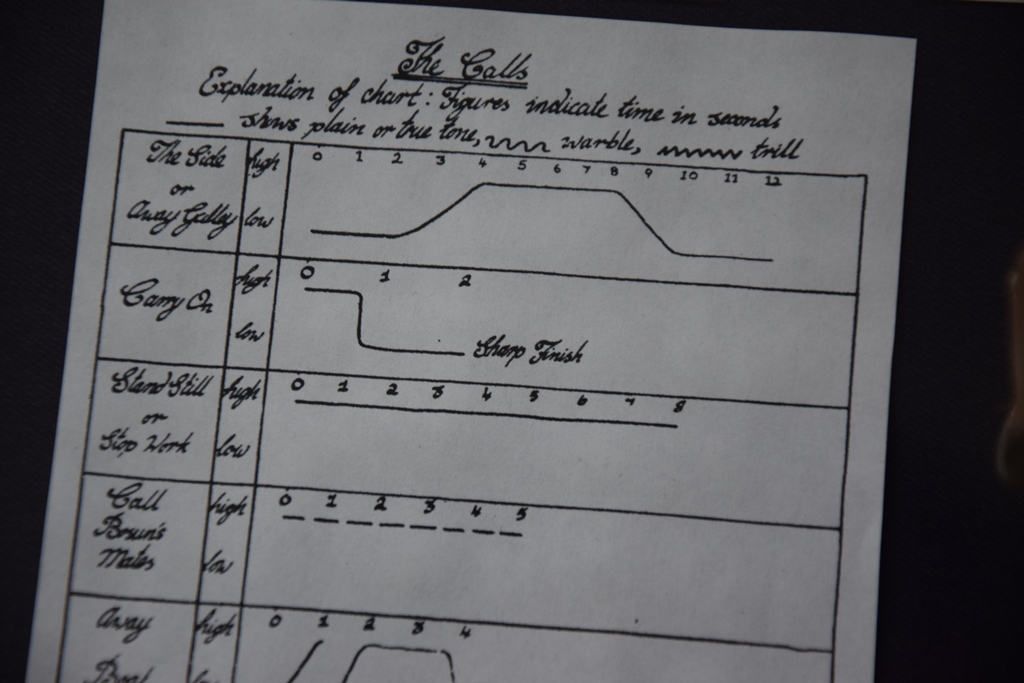 The Calls
Explanation of chart: Figures indicate time in seconds
shows plain or true tone, warble, trill
The Side
or
Away Galley
high
low
0 1 2 3 4 5 6 7 8 9 10 11 12
Carry On
high
low
0 1 2
Sharp Finish
Stand Still
or
Stop Work
high
low
0 1 2 3 4 5 6 7 8
Call
Bosun's
Mates
high
low
0 1 2 3 4 5
Away
Boat
high
low
0 1 2 3 4